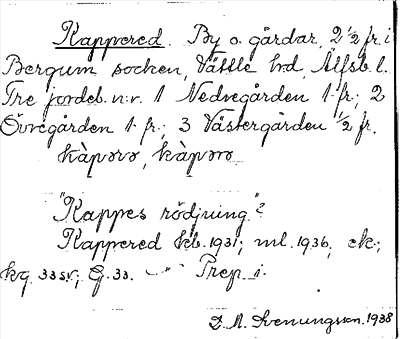 Kappered. By o. gårdar, 2 1/2 fr. i
Bergum socken, Vättle hd, Älfsb. l.
Tre jordeb. n:r. 1 Nedregården 1 fr.; 2
Övregården 1 fr.; 3 Västergården 1/2 fr.
kàpərə, kàpərə
"Kappes rödjning"?
Kappered kb. 1931; ml. 1936, ek.;
kg. 33 sv; G. 33. Prep. i.
D. A. Svenungsson. 1938